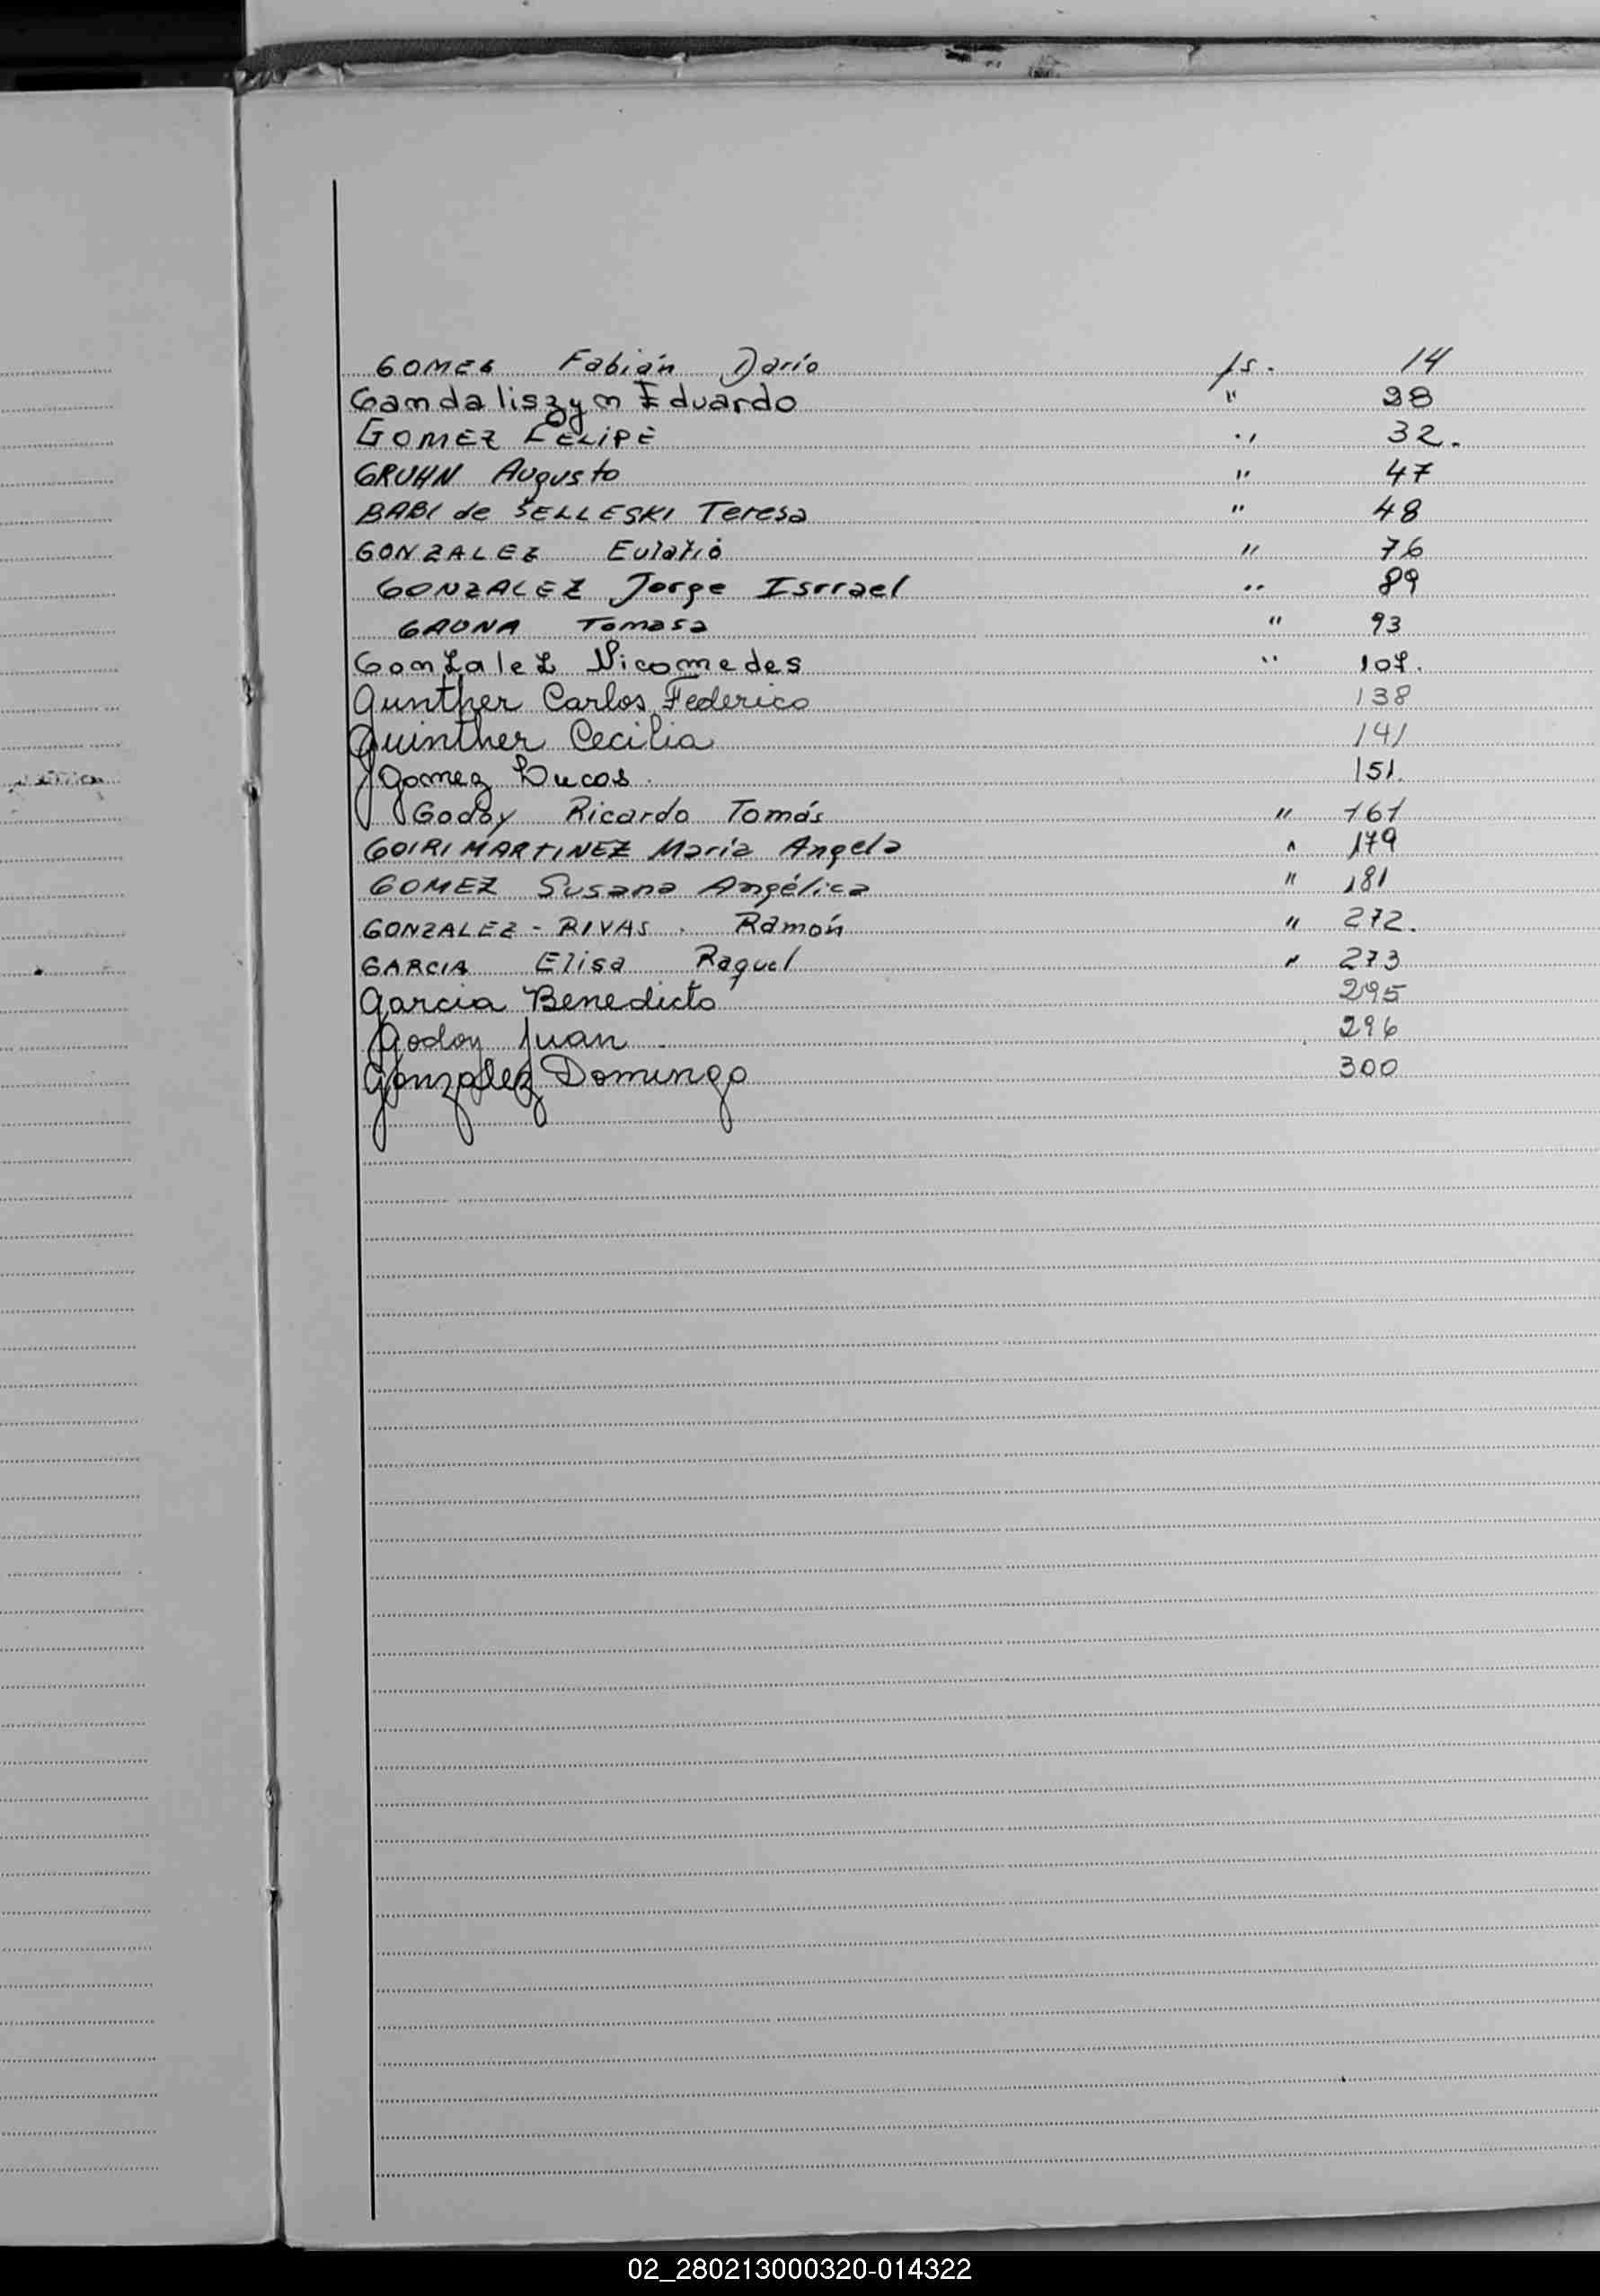 GOMEZ Fabián Darío fs. 14
Gandaliszyn Eduardo " 28
GOMEZ FELIPE " 32.
GRUHN Augusto " 47
BABI de SELLESKI Teresa " 48
GONZALEZ Eulalio " 76
GONZALEZ Jorge Isrrael " 89
GAONA Tomasa " 93
Gonzalez Nicomedes " 107.
Gunther Carlos Federico 138
Guinther Cecilia 141
Gomez Lucas. 151.
Godoy Ricardo Tomás " 161
GOIRI MARTINEZ María Angela " 179
GOMEZ Susana Angélica " 181
GONZALEZ - RIVAS. Ramón " 272.
GARCIA Elisa Raquel " 273
Garcia Benedicto 295
Godoy Juan 296
Gonzalez Domingo 300
02_280213000320-014322